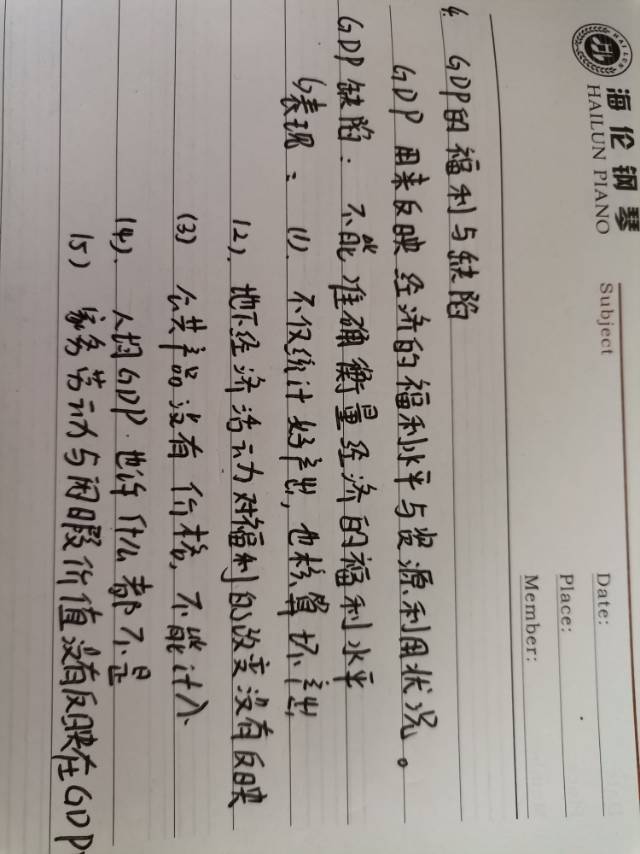 海伦钢琴
HAILUN PIANO
Subject
Date:
Place:
Member:
4. GDP的福利与缺陷
GDP用来反映经济的福利水平与资源利用状况。
GDP缺陷：不能准确衡量经济的福利水平
↳表现：(1) 不仅统计好产出，也核算坏产出
(2). 地下经济活动对福利的改变没有反映
(3) 公共产品没有价格，不能计入
(4). 人均GDP.也许什么都不是
(5) 家务劳动与闲暇价值没有反映在GDP